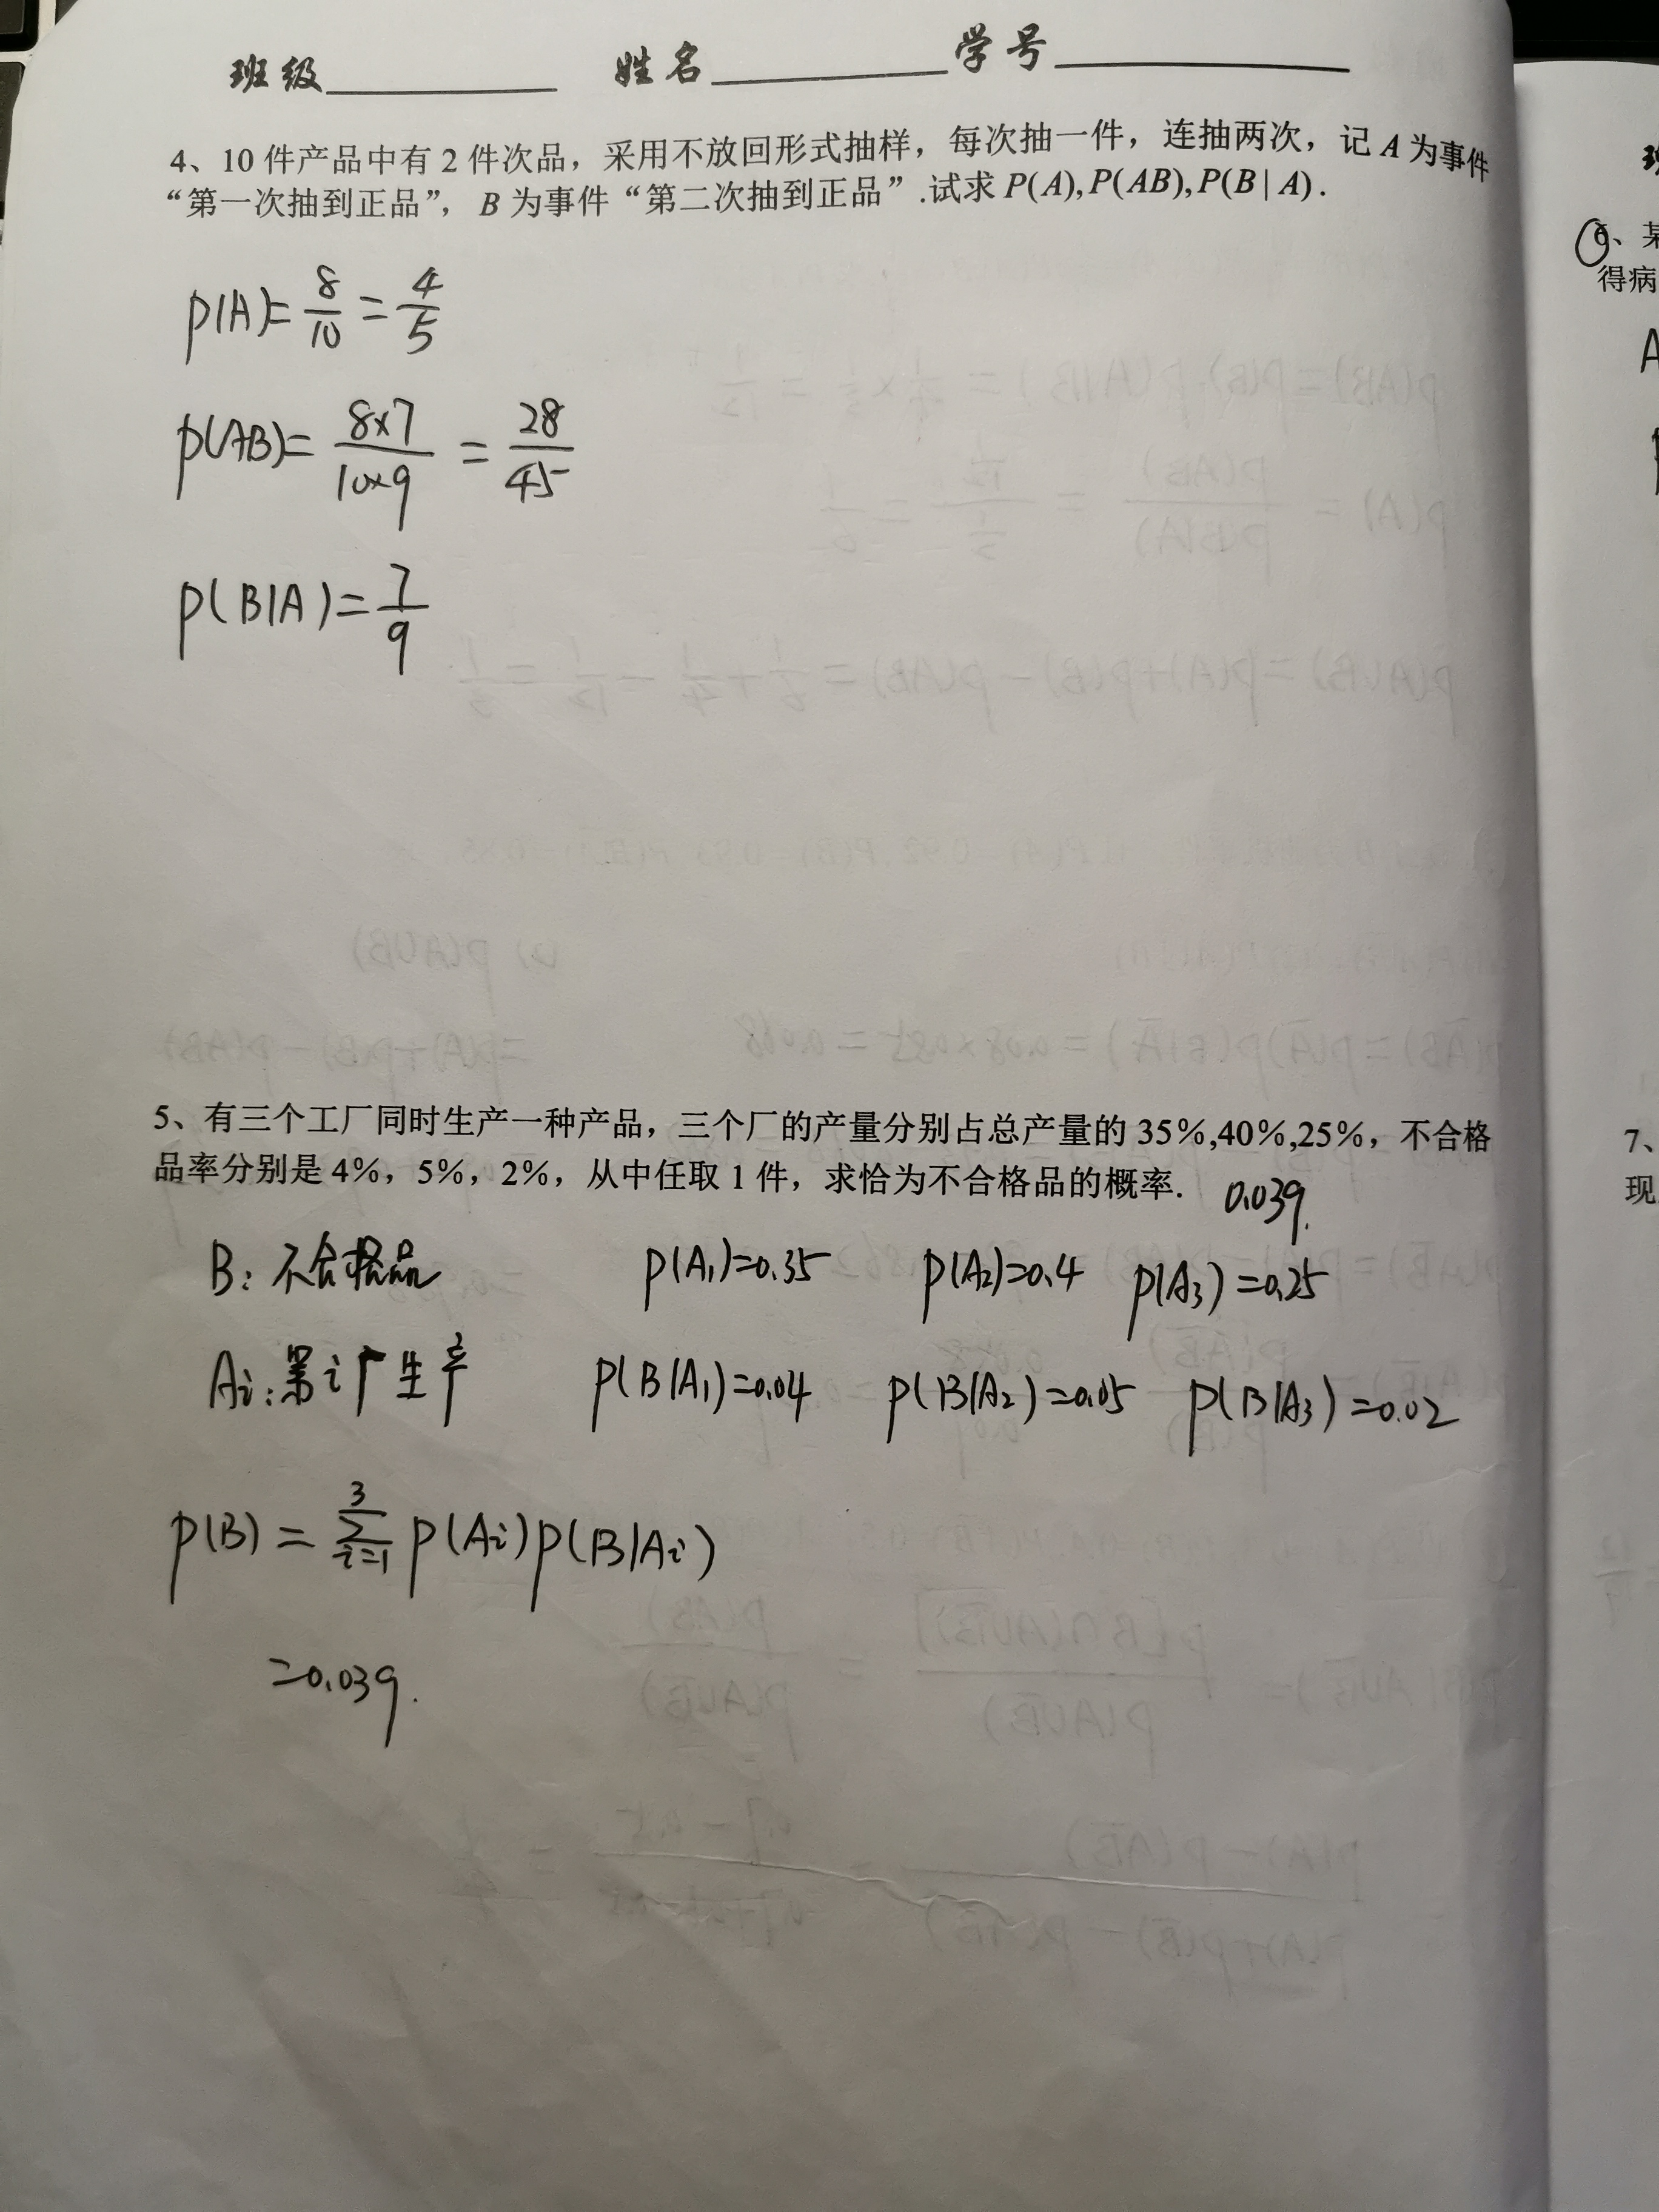 班级 姓名 学号
4、10 件产品中有 2 件次品，采用不放回形式抽样，每次抽一件，连抽两次，记 A 为事件
“第一次抽到正品”， B 为事件“第二次抽到正品”.试求 P(A),P(AB),P(B|A).
p(A)=8/10=4/5
p(AB)=8×7/10×9=28/45
p(B|A)=7/9
5、有三个工厂同时生产一种产品，三个厂的产量分别占总产量的 35%,40%,25%，不合格
品率分别是 4%，5%，2%，从中任取 1 件，求恰为不合格品的概率. 0.039.
B: 不合格品 p(A₁)=0.35 p(A₂)=0.4 p(A₃)=0.25
Ai:第i厂生产 p(B|A₁)=0.04 p(B|A₂)=0.05 p(B|A₃)=0.02
p(B)=∑³ᵢ₌₁p(Ai)p(B|Ai)
=0.039.
6、某
得病
A
7、
现